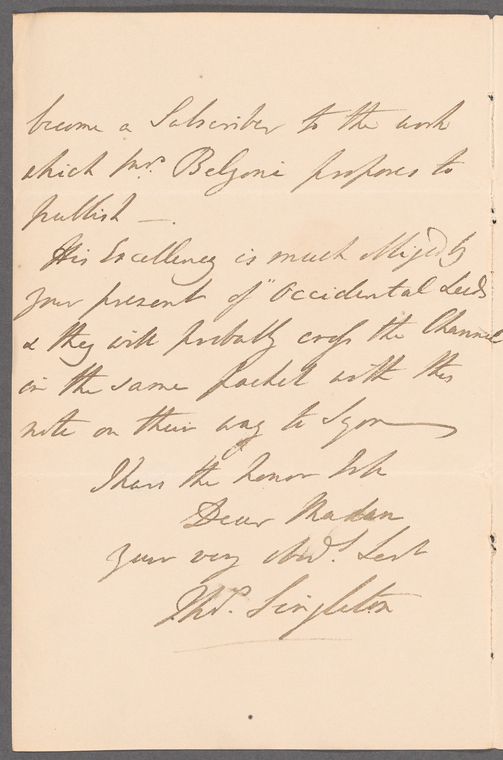 become a Subscriber to the work
which Mrs. Belzoni proposes to
publish —.
His Excellency is much obliged by
your present of "Occidental Seeds
& they will probably cross the Channel
in the same packet with this
note on their way to Syon
I have the honor to be
Dear Madam
your very obedt. Servt
Thos. Singleton